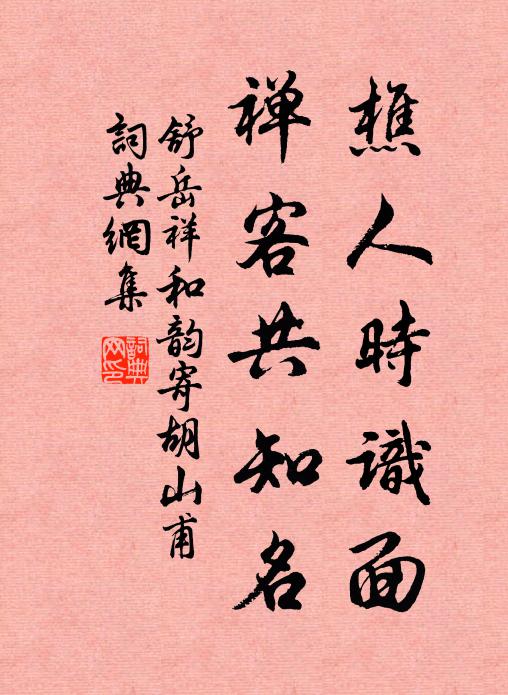 樵人時識面
禅客共知名
舒岳祥和韵寄胡山甫
詞典網集
詞典网印